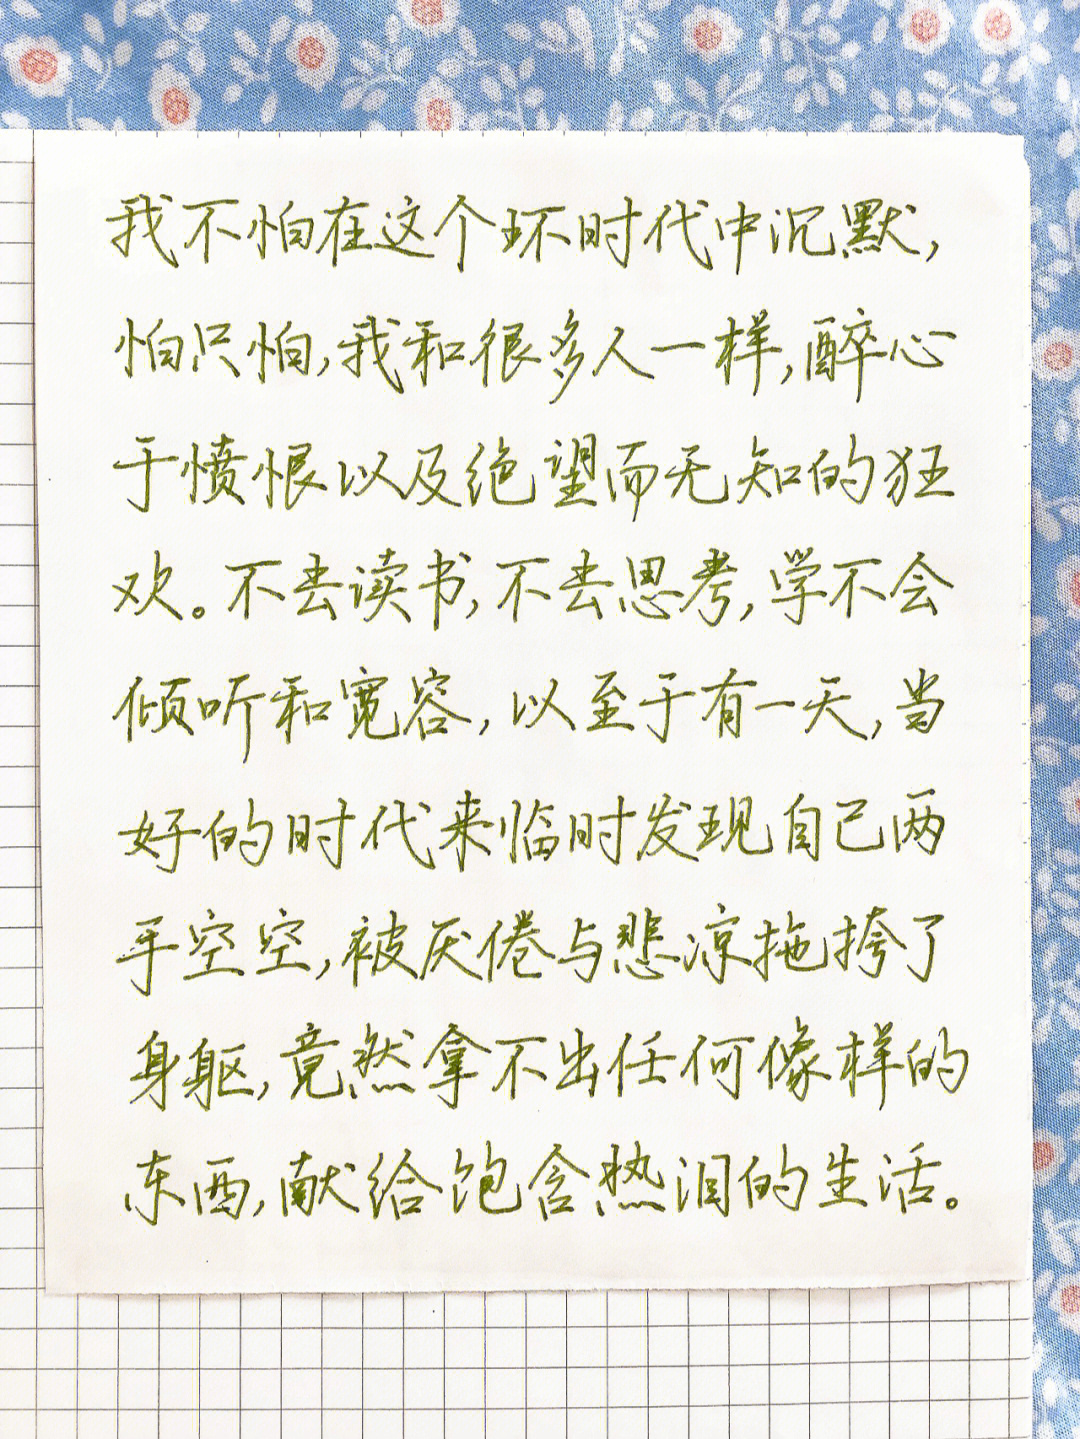 我不怕在这个坏时代中沉默,
怕只怕,我和很多人一样,醉心
于愤恨以及绝望而无知的狂
欢。不去读书,不去思考,学不会
倾听和宽容,以至于有一天,当
好的时代来临时发现自己两
手空空,被厌倦与悲凉拖挎了
身躯,竟然拿不出任何像样的
东西,献给饱含热泪的生活。